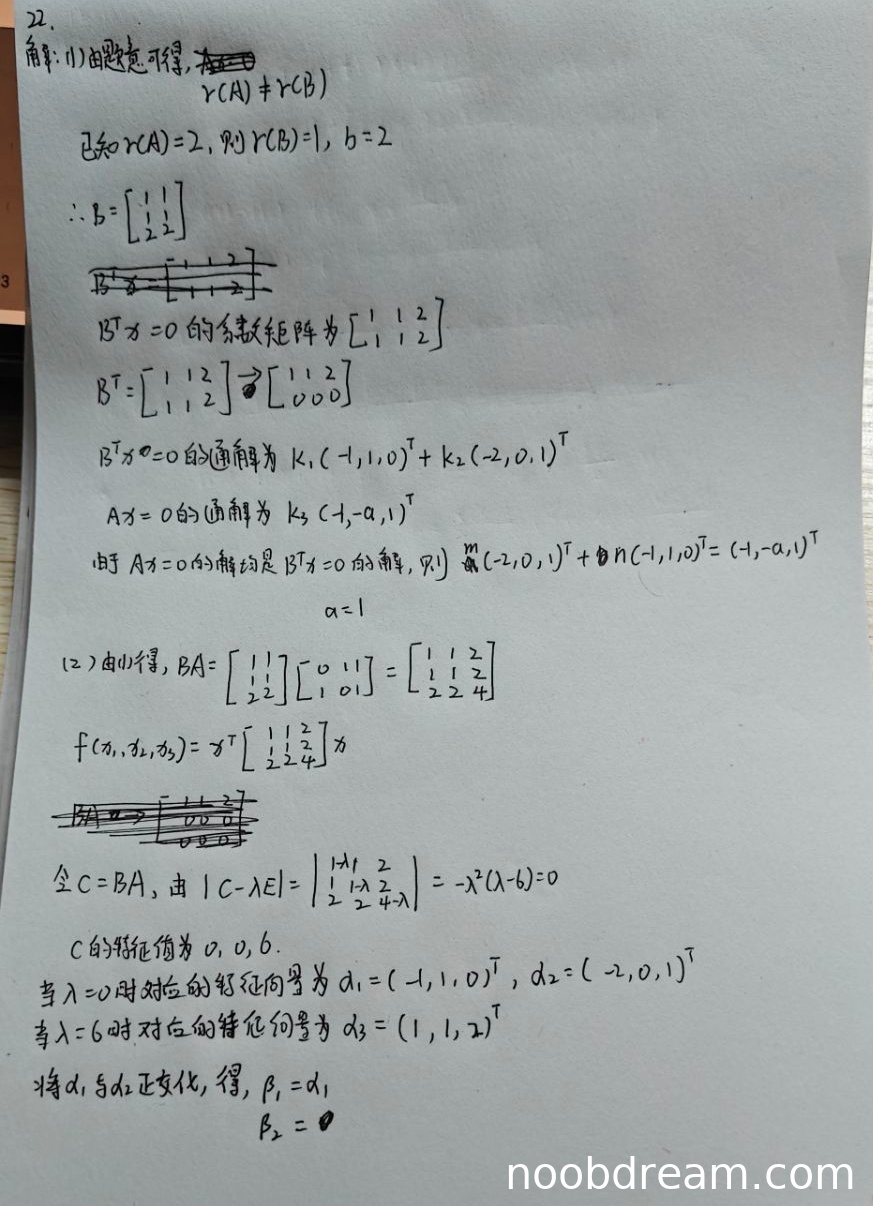 22.
解:(1)由题意可得,
r(A)≠r(B)
已知r(A)=2,则r(B)=1, b=2
∴B=[1 1; 1 1; 2 2]
Bᵀx=0的系数矩阵为[1 1 2; 1 1 2]
Bᵀ=[1 1 2; 1 1 2]→[1 1 2; 0 0 0]
Bᵀx=0的通解为 k₁(-1,1,0)ᵀ+k₂(-2,0,1)ᵀ
Ax=0的通解为 k₃(-1,-a,1)ᵀ
由于Ax=0的解均是Bᵀx=0的解,则 m(-2,0,1)ᵀ+n(-1,1,0)ᵀ=(-1,-a,1)ᵀ
a=1
(2)由(1)得, BA=[1 1; 1 1; 2 2][0 1 1; 1 0 1]=[1 1 2; 1 1 2; 2 2 4]
f(x₁,x₂,x₃)=xᵀ[1 1 2; 1 1 2; 2 2 4]x
令C=BA, 由|C-λE|=|1-λ 1 2; 1 1-λ 2; 2 2 4-λ|=-λ²(λ-6)=0
C的特征值为0,0,6.
当λ=0时对应的特征向量为α₁=(-1,1,0)ᵀ, α₂=(-2,0,1)ᵀ
当λ=6时对应的特征向量为α₃=(1,1,2)ᵀ
将α₁与α₂正交化,得, β₁=α₁
β₂=
3
noobdream.com